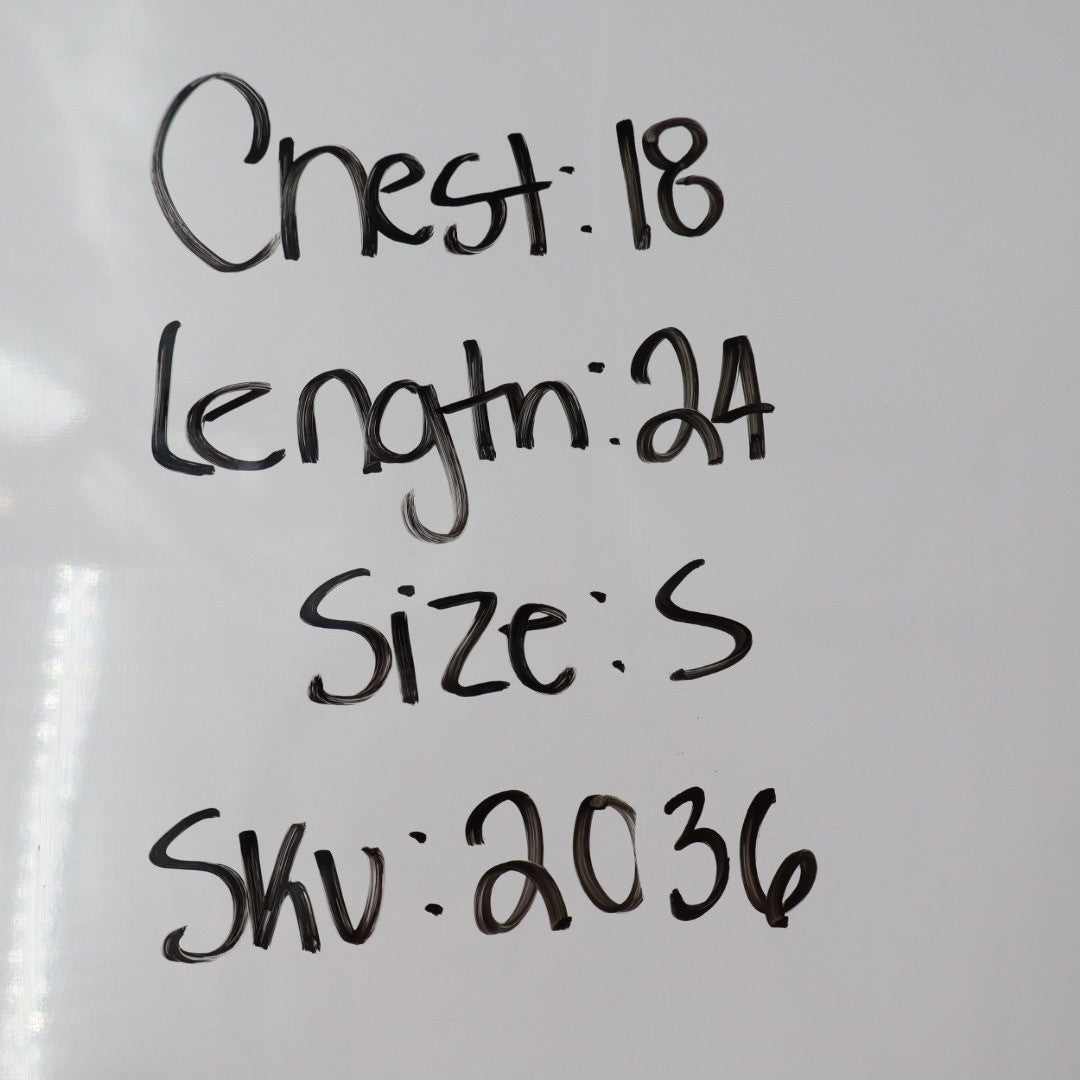 Chest: 18
Length: 24
Size: S
SKU: 2036